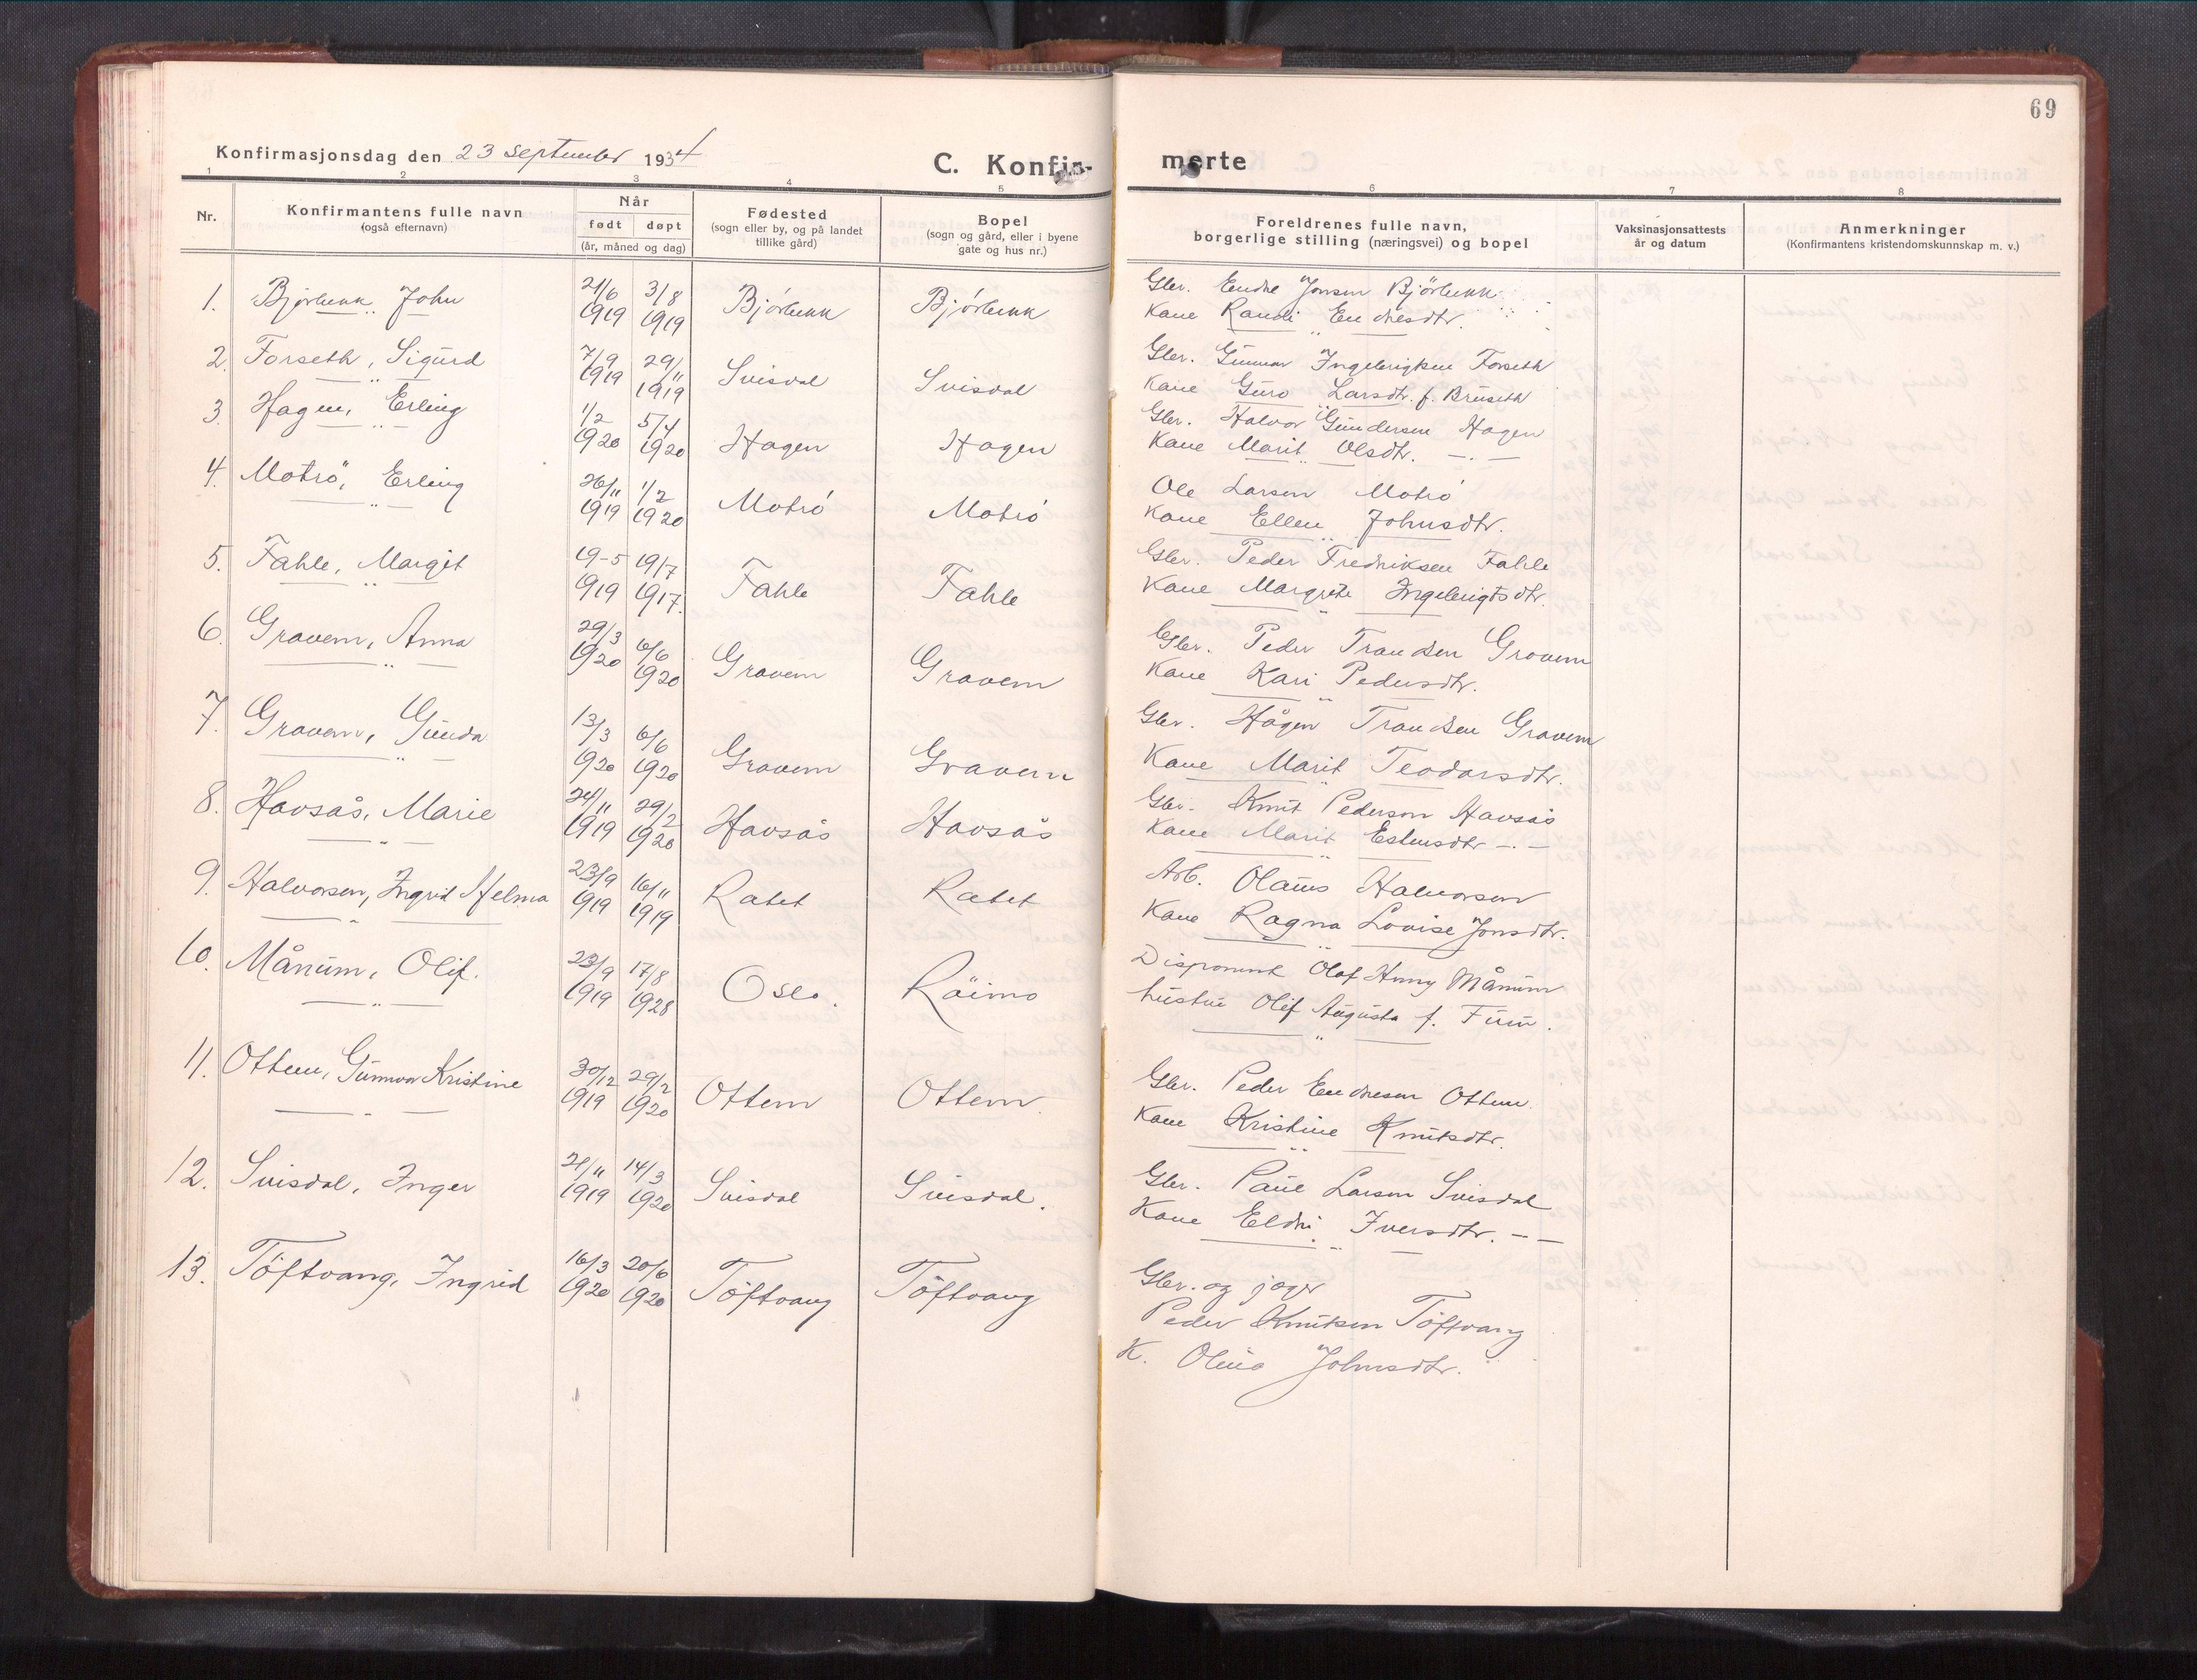 69
Konfirmasjonsdag den 23 september 1934
C. Konfir- merte
1 2 3 4 5 6 7 8
Nr.
Konfirmantens fulle navn
(også efternavn)
Når
født døpt
(år, måned og dag)
Fødested
(sogn eller by, og på landet
tillike gård)
Bopel
(sogn og gård, eller i byene
gate og hus nr.)
Foreldrenes fulle navn,
borgerlige stilling (næringsvei) og bopel
Vaksinasjonsattests
år og datum
Anmerkninger
(Konfirmantens kristendomskunnskap m. v.)
1. Bjørbekk, John 21/6 1919 3/8 1919 Bjørbekk Bjørbekk Gbr. Endre Jonsen Bjørbekk
Kone Randi Endresdtr.
2. Forseth, Sigurd 7/9 1919 29/11 1919 Svisdal Svisdal Gbr. Gunnar Ingebrigtsen Forseth
Kone Guro Larsdtr. f. Bruseth
3. Hagen, Erling 1/2 1920 5/4 1920 Hagen Hagen Gbr. Halvor Gundersen Hagen
Kone Marit Olsdtr. -.-
4. Motrö, Erling 26/11 1919 1/2 1920 Motrö Motrö Ole Larsen Motrö
Kone Ellen Johnsdtr.
5. Fahle, Margit 19-5 1919 19/7 1917. Fahle Fahle Gbr. Peder Fredriksen Fahle
Kone Margrete Ingebrigtsdtr.
6. Gravem, Anna 29/3 1920 6/6 1920 Gravem Gravem Gbr. Peder Trondsen Gravem
Kone Kari Pedersdtr.
7. Gravem, Gunda 13/3 1920 6/6 1920 Gravem Gravem Gbr. Hågen Trondsen Gravem
Kone Marit Teodorsdtr.
8. Havsås, Marie 24/11 1919 29/2 1920 Havsås Havsås Gbr. Knut Pederson Havsås
Kone Marit Estensdtr -.-
9. Halvorsen, Ingrid Helma 23/9 1919 16/11 1919 Ratet Ratet Arb. Olaus Halvorsen
Kone Ragna Lovise Jonsdtr.
10. Månum, Olif. 23/9 1919 17/8 1928 Oslo. Röimo Disponent Olaf Henry Månum
hustru Olif Augusta f. Furu.
11. Ottem, Gunvor Kristine 30/12 1919 29/2 1920 Ottem Ottem. Gbr. Peder Endresen Ottem.
Kone Kristine Knutsdtr.
12. Svisdal, Inger 21/11 1919 14/3 1920 Svisdal Svisdal. Gbr. Paul Larsen Svisdal
Kone Eldri Iversdtr. --
13. Töftvang, Ingrid 16/3 1920 20/6 1920 Töftvang Töftvang Gbr. og jeger
Peder Knutsen Töftvang
K. Olina Johnsdtr.